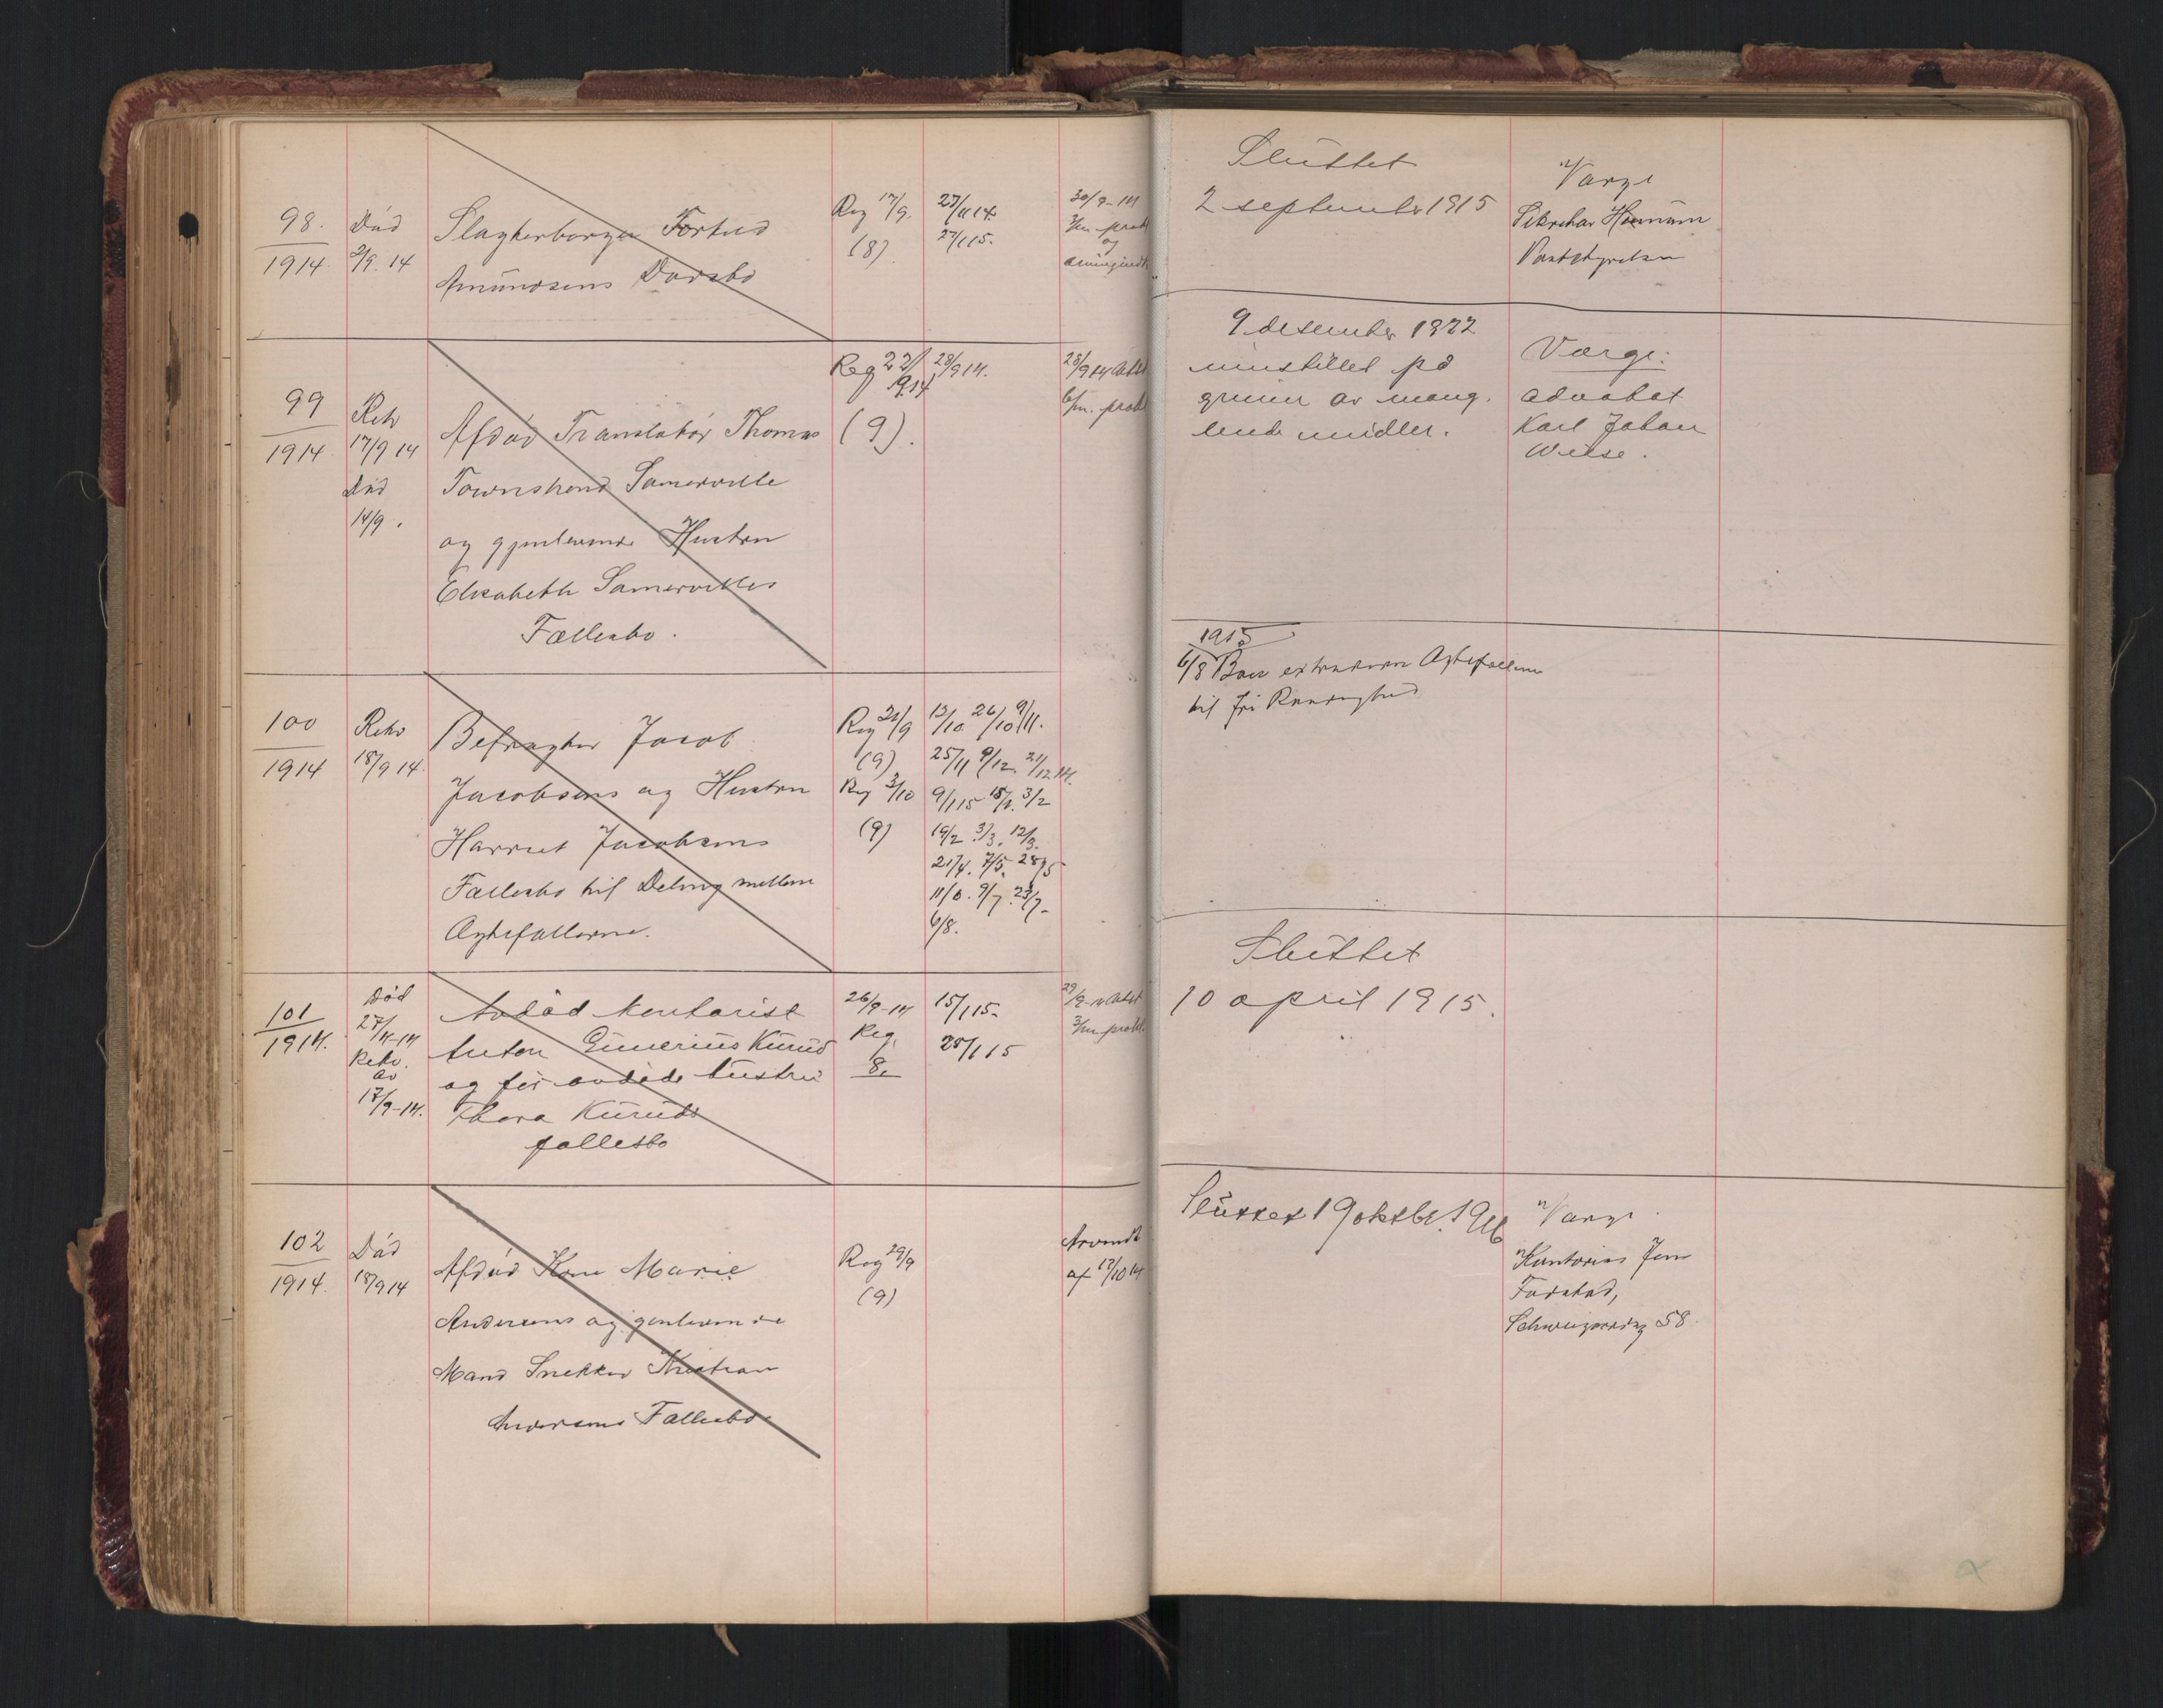 98.
1914.
Død
2/9. 14
Slagterborger Fortud
Amundsens Dødsbo
Reg 17/9.
(8)
27/11 14.
27/1 15.
30/9-14
3/m. prokl
og
Sluttet
2 september 1915
Værge
Sekretær
99
1914
Rekv
17/9 14
Død
14/9.
Afdød Translatør Thomas
Townshend Somerville
og gjenlevende Hustru
Elisabeth Somervilles
Fællesbo.
Reg 22/
9.14
(9).
28/9 14.
28/9 14 Avst
6/m. prokl
9. desember 1922
innstillet på
grunn av mang.
lende midler.
Værge:
advokat
Karl Johan
Wiese.
100
1914
Rekv
18/9 14.
Befragter Jacob
Jacobsens og Hustru
Harriet Jacobsens
Fællesbo til Deling mellem
Ægtefællerne.
Reg 21/9
(9)
Reg 3/10
(9)
13/10 26/10 9/11.
25/11 9/12. 21/12 14.
9/1 15 18/1. 3/2
19/2. 3/3. 12/3.
21/4. 7/5. 28/5
11/6. 9/7. 23/7-
6/8.
1915
6/8 Boet extraderet Ægtefællerne
til fri Raadighed
101
1914.
Død
27/4-14
Rekv.
av
17/9-14.
Avdød kontorist
Anton Gunerius Kurud
og før avdøde hustru
Thora Kuruds
fællesbo
26/9-14
Reg.
8.
15/1 15.
25/1 15
29/9-14 Avst
3/m prokl.
Sluttet
10 april 1915.
102
1914.
Død
18/9 14
Afdød Karen Marie
Andersens og gjenlevende
Mand Snekker Kristian
Andersens Fællesbo
Reg 29/9
(9)
af 17/10 14
Sluttet 19 oktbr. 1916
Værge
Kontorist Jens
Schweigaardsg 58.